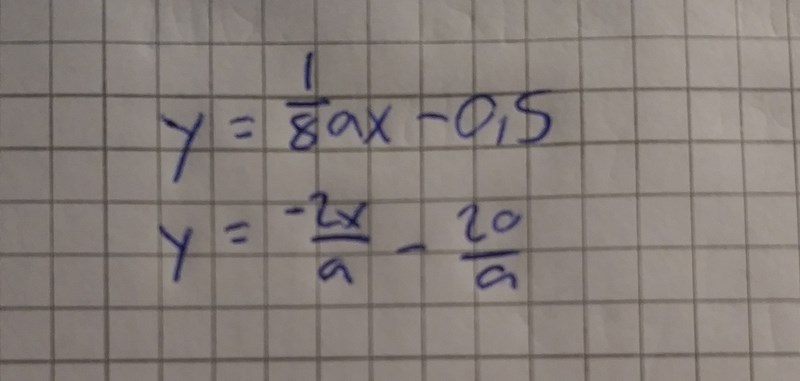 y = 1/8 ax - 0,5
y = -2x/a - 20/a